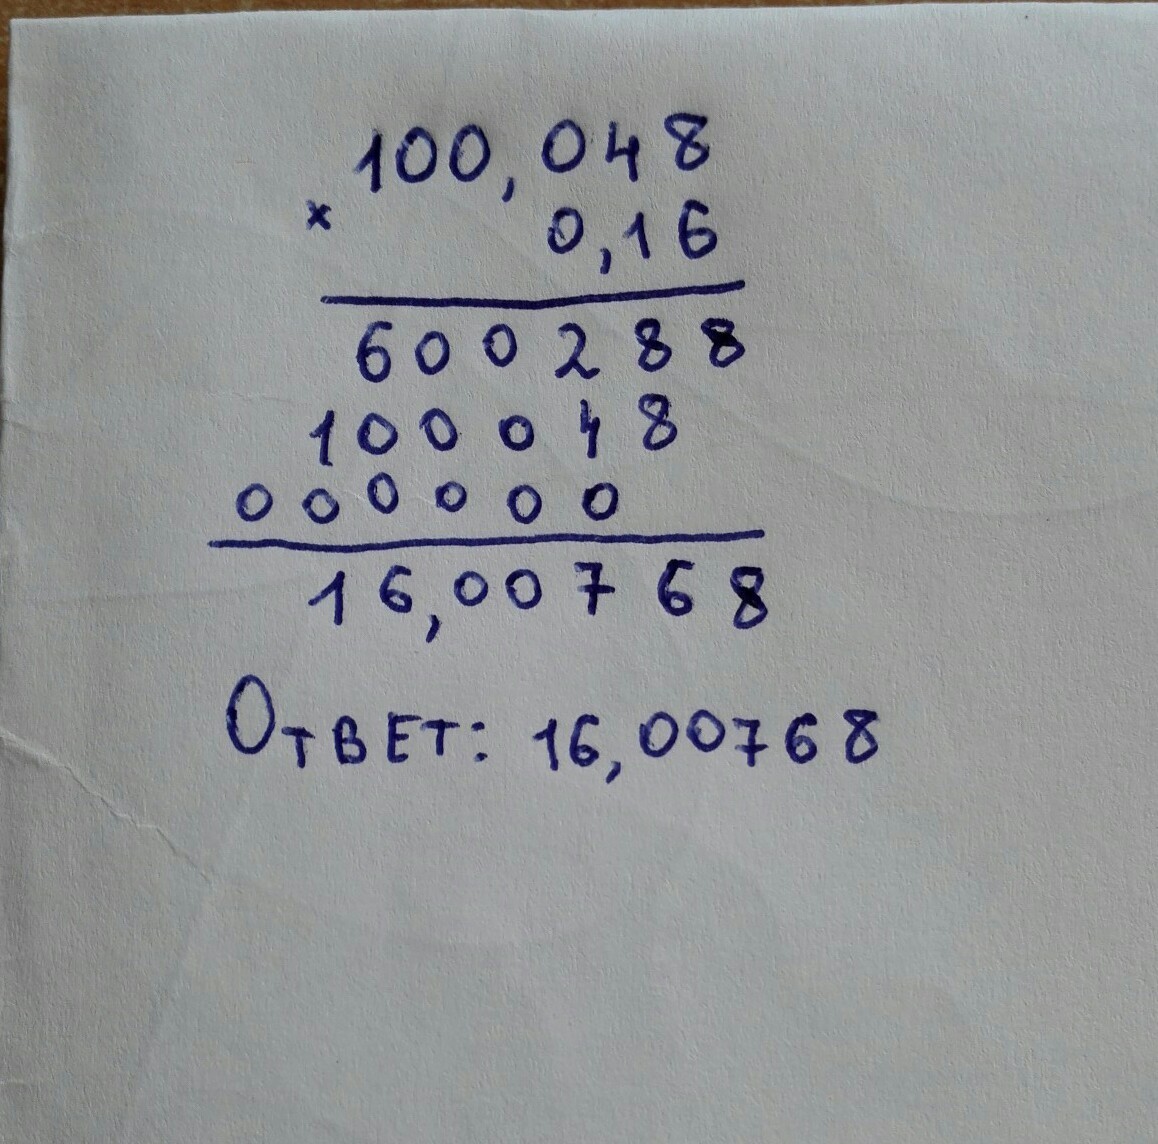 100,048
× 0,16
600288
100048
000000
16,00768
Ответ: 16,00768